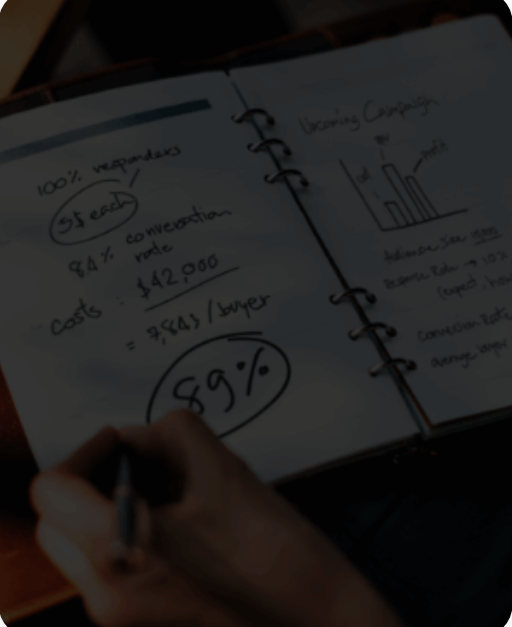 100% responders
5$ each
84% conversation
rate
costs : $42,000
= 7,843 / buyer
89%
Upcoming Campaign
profit
Audience size
Response Rate → 10%
(expect.
Conversion Rate
average buyer